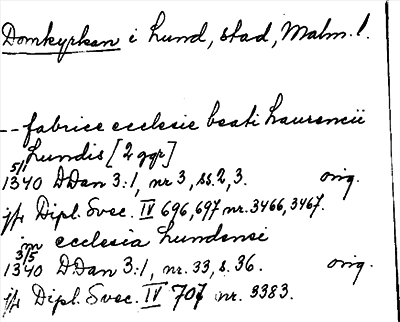 Domkyrkan i Lund, stad, Malm. l.
-- fabrice ecclesie beati Laurencii
Lundis [2 ggr]
5/1
1340 DDan 3:1, nr 3, ss. 2, 3. orig.
jfr Dipl. Svec. IV 696, 697 nr. 3466, 3467.
in ecclesia Lundensi
3/5
1340 DDan 3:1, nr. 33, s. 36. orig.
jfr Dipl. Svec. IV 707 nr. 3383.